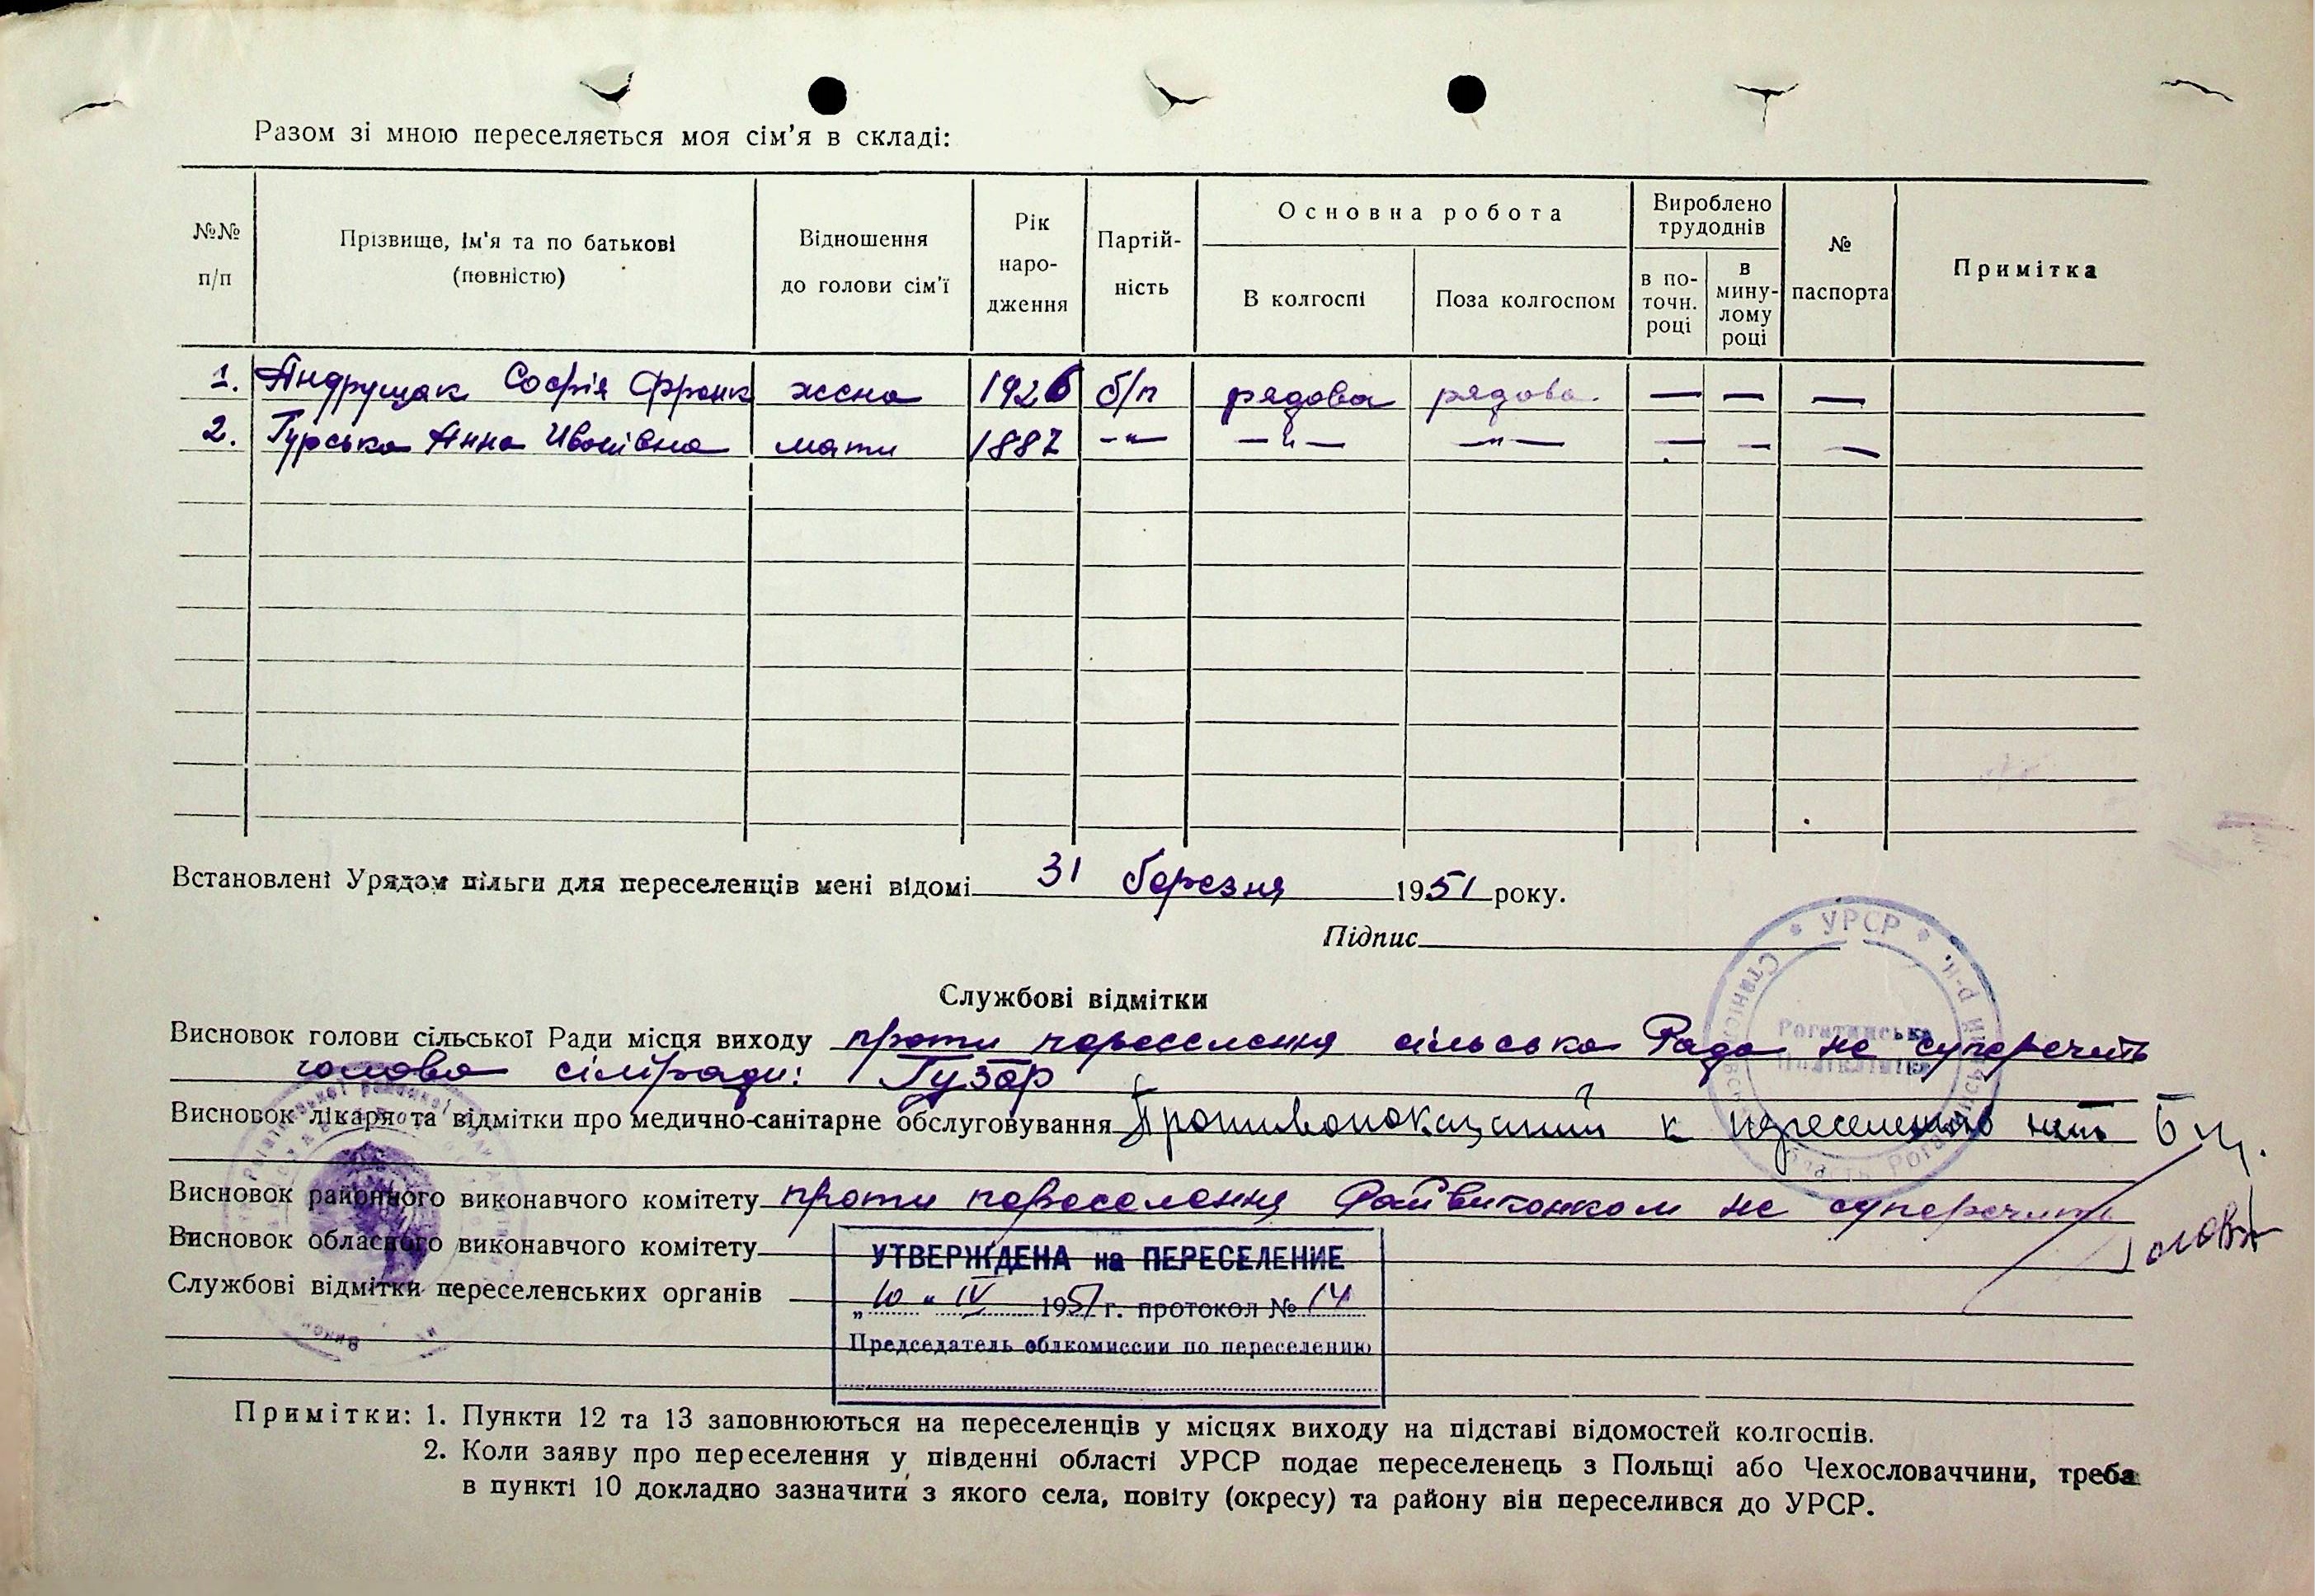 Разом зі мною переселяється моя сім'я в складі:
№№ п/п
Прізвище, ім'я та по батькові (повністю)
Відношення до голови сім'ї
Рік народження
Партійність
Основна робота
В колгоспі
Поза колгоспом
Вироблено трудоднів
в поточн. році
в минулому році
№ паспорта
Примітка
1. Андрущак Софія Франк жена 1926 б/п рядова рядова. — — —
2. Гурська Анна Иванівна мати 1887 -"- -"- -"- — — —
Встановлені Урядом пільги для переселенців мені відомі 31 березня 1951 року.
Підпис
Службові відмітки
Висновок голови сільської Ради місця виходу проти пореселення сільська Рада не суперечить
голова сілмради: Гузар
Висновок лікаря та відмітки про медично-санітарне обслуговування Противопоказаний к переселению нет
Висновок районного виконавчого комітету проти пореселення Райвиконком не суперечить
Висновок обласного виконавчого комітету
Службові відмітки переселенських органів
УТВЕРЖДЕНА на ПЕРЕСЕЛЕНИЕ
„10" IV 1951 г. протокол № 14
Председатель облкомиссии по переселению
УРСР
Рогатинська
Поліклініка
Примітки: 1. Пункти 12 та 13 заповнюються на переселенців у місцях виходу на підставі відомостей колгоспів.
2. Коли заяву про переселення у південні області УРСР подає переселенець з Польщі або Чехословаччини, треба
в пункті 10 докладно зазначити з якого села, повіту (окресу) та району він переселився до УРСР.